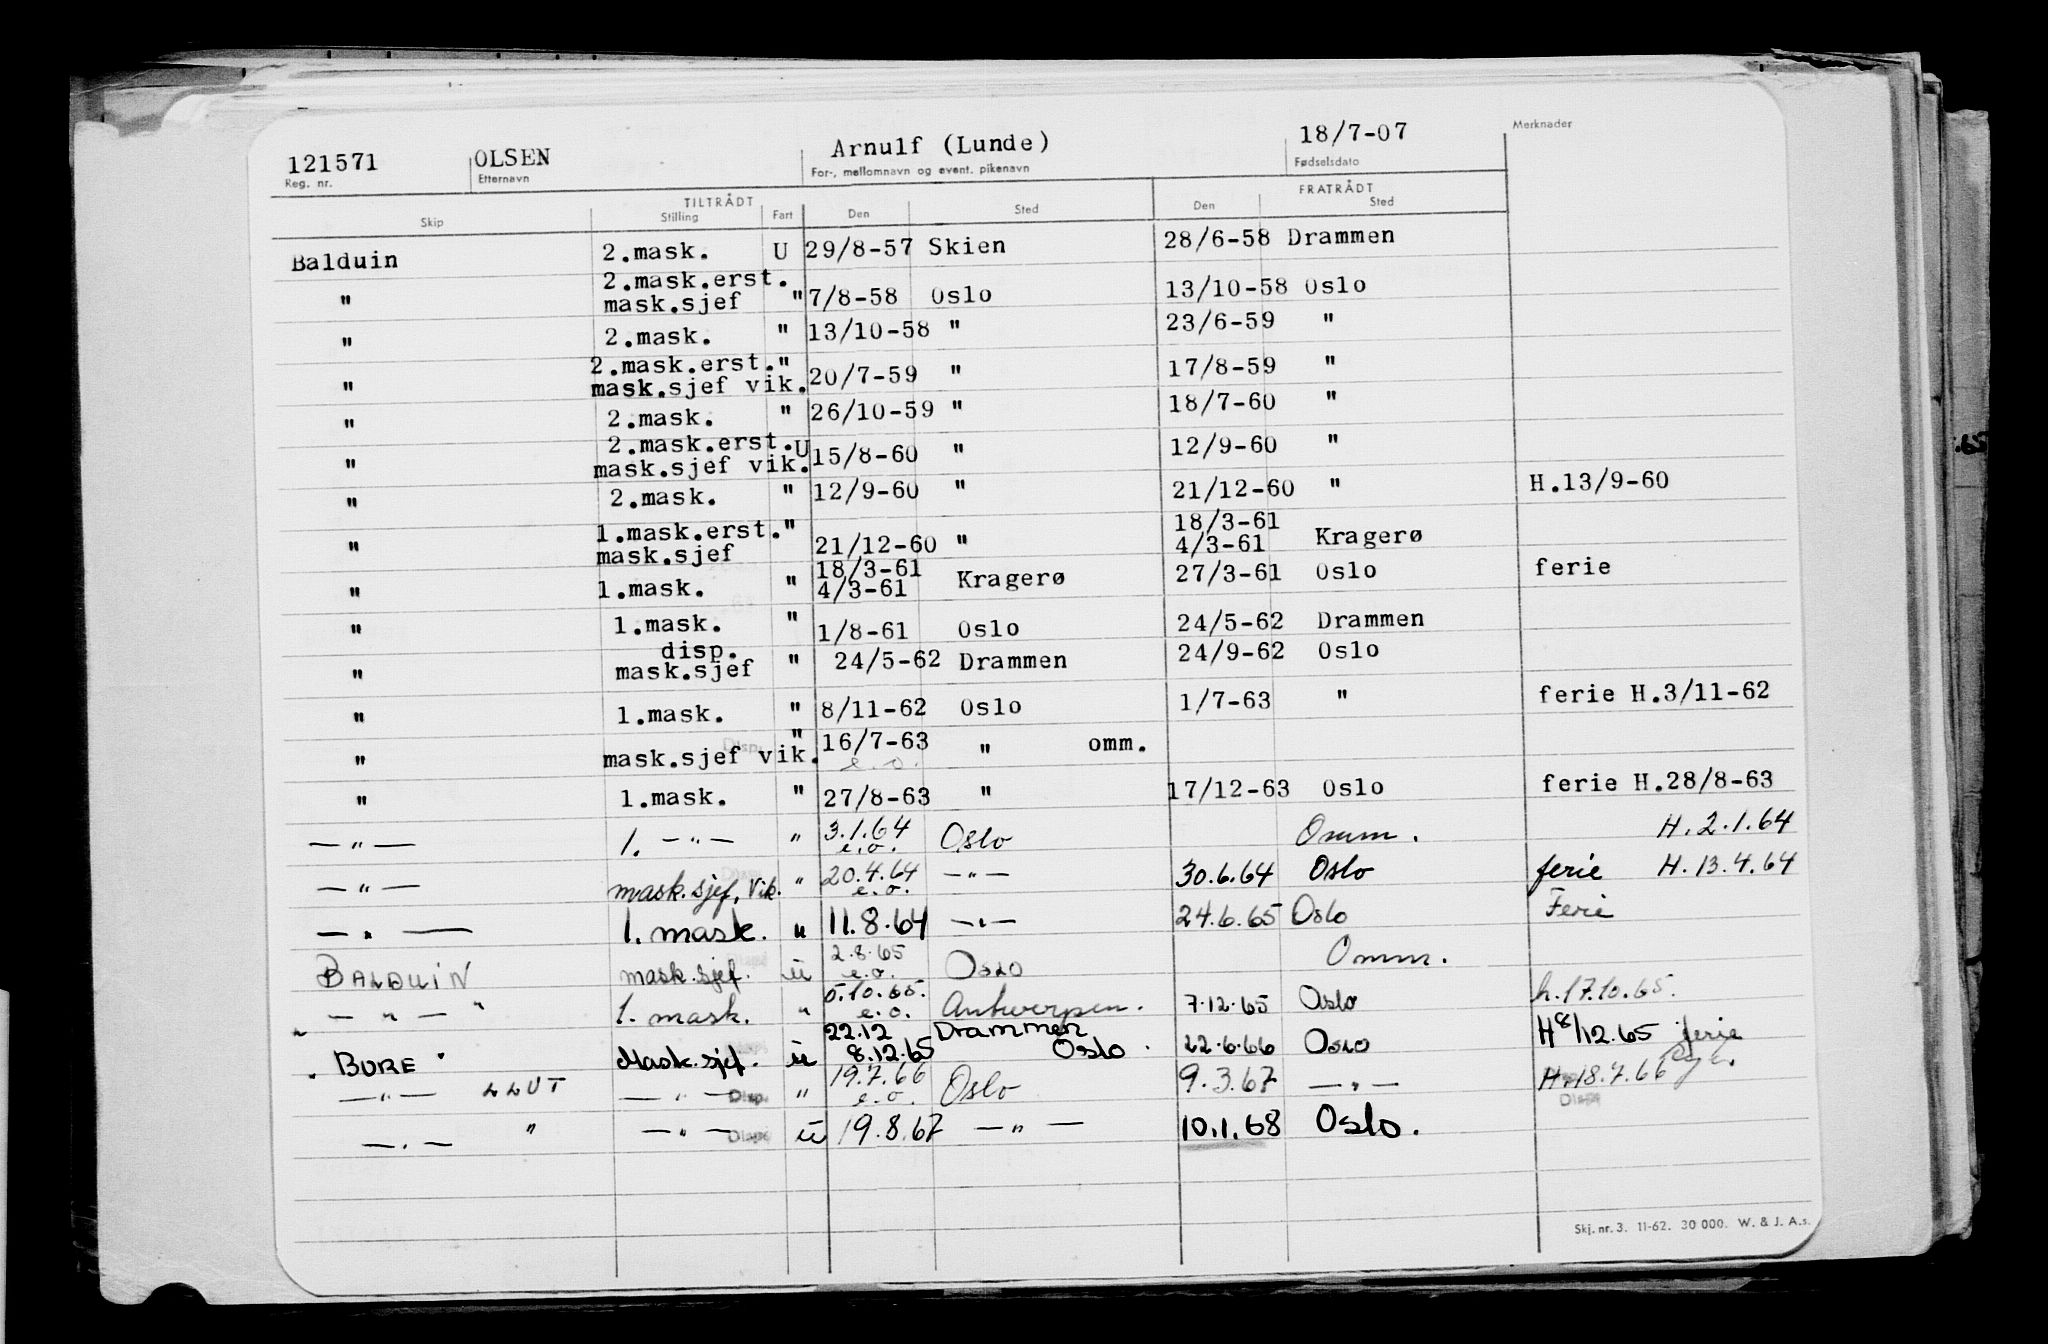 121571 OLSEN Arnulf (Lunde) 18/7-07 Merknader
Reg. nr. Etternavn For-, mellomnavn og event. pikenavn Fødselsdato
TILTRÅDT FRATRÅDT
Skip Stilling Fart Den Sted Den Sted
Balduin 2.mask. U 29/8-57 Skien 28/6-58 Drammen
2.mask.erst.
" mask.sjef " 7/8-58 Oslo 13/10-58 Oslo
" 2.mask. " 13/10-58 " 23/6-59 "
2.mask.erst. "
" mask.sjef vik. 20/7-59 " 17/8-59 "
" 2.mask. " 26/10-59 " 18/7-60 "
2.mask.erst. U
" mask.sjef vik. 15/8-60 " 12/9-60 "
" 2.mask. " 12/9-60 " 21/12-60 " H.13/9-60
1.mask.erst. " 18/3-61
" mask.sjef 21/12-60 " 4/3-61 Kragerø
18/3-61
" 1.mask. " 4/3-61 Kragerø 27/3-61 Oslo ferie
" 1.mask. " 1/8-61 Oslo 24/5-62 Drammen
disp.
" mask.sjef " 24/5-62 Drammen 24/9-62 Oslo
" 1.mask. " 8/11-62 Oslo 1/7-63 " ferie H.3/11-62
" mask.sjef vik. " 16/7-63 " omm.
e.o.
" 1.mask. " 27/8-63 " 17/12-63 Oslo ferie H.28/8-63
— " — 1. — " — " 3.1.64 Oslo Omm. H.2.1.64
e.o.
— " — mask.sjef. Vik. " 20.4.64 — " — 30.6.64 Oslo ferie H.13.4.64
e.o.
— " — 1. mask. " 11.8.64 — " — 24.6.65 Oslo Ferie
2.8.65
BALDUIN mask.sjef. U e.o. Oslo Omm.
5.10.65.
" — " — " 1. mask. " e.o. Antwerpen. 7.12.65 Oslo h.17.10.65.
22.12 Drammen
" BURE " Mask.sjef. U 8.12.65 Oslo. 22.6.66 Oslo H 8/12.65 ferie
— " — LLUT — " — Disp. " 19.7.66 Oslo 9.3.67 — " — H.18.7.66
e.o.
— " — " — " — U 19.8.67 — " — 10.1.68 Oslo.
Skj. nr. 3. 11-62. 30 000. W. & J. A.s.
.65